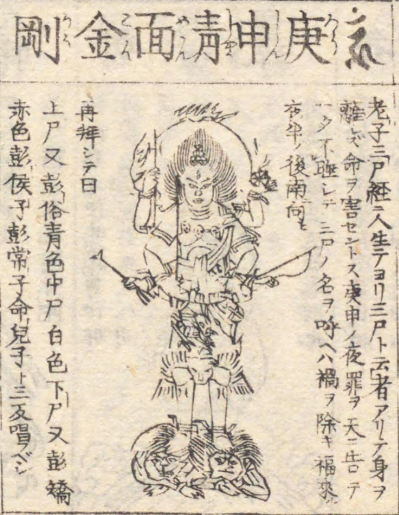 庚申青面金剛
老子三尸經ニ人生テヨリ三尸ト云者アリテ身ヲ
離レズ命ヲ害セントス庚申ノ夜罪ヲ天ニ告ク
不睡シテ三尸ノ名ヲ呼ハ禍ヲ除キ福来ル
夜半ノ後南向ニ
再拜シテ曰
上尸又彭俗青色中尸白色下尸又彭矯
赤色彭侯子彭常子命兒子ト三反唱ベシ